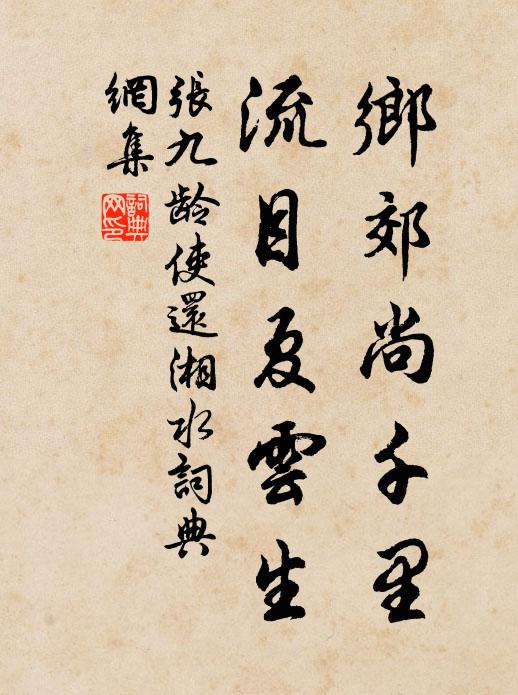 鄉郊尚千里
流目夏雲生
張九齡使還湘水詞典
網集
詞典
网印